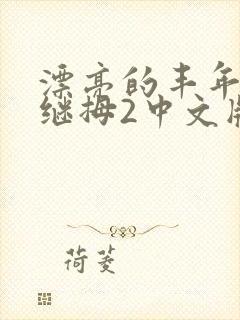 漂亮的丰年
继拇2中文版
荷菱